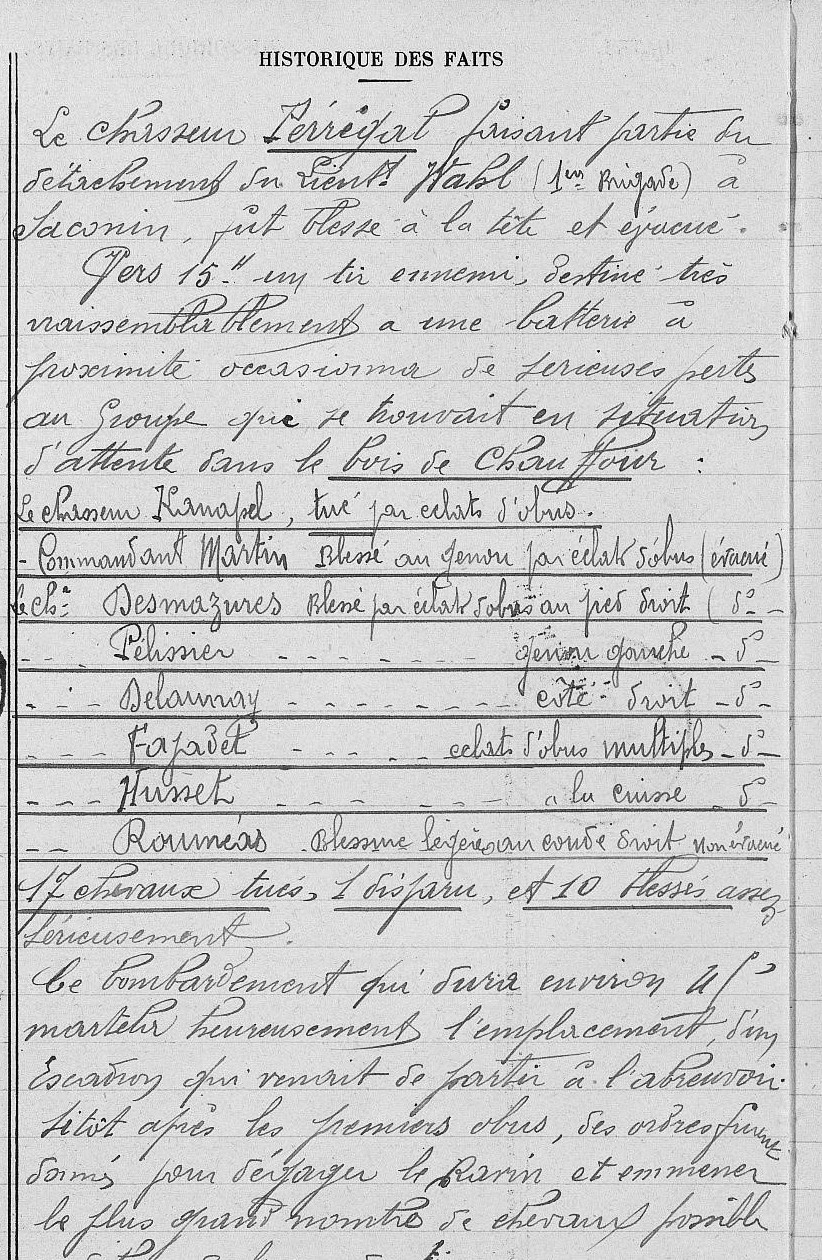 HISTORIQUE DES FAITS
Le chasseur Perrégal faisant partie du
détachement du Lieutt Wahl (1ère Brigade) à
Saconin, fut blessé à la tête et évacué.
Vers 15H un tir ennemi, destiné très
vraissemblablement a une batterie à
proximité occasionna de serieuses pertes
au Groupe qui se trouvait en situation
d'attente dans le bois de Chauffour :
Le chasseur Kanapel, tué par eclats d'obus.
- Commandant Martin Blessé au genou par éclat d'obus (évacué)
le chr Desmazures Blessé par éclat d'obus au pied droit ( do -
- - - Pélissier - - - - - - - genou gauche - do -
- - - Delaunay - - - - - - - - coté droit - do -
- - - Fajadet - - - - - eclats d'obus multiples - do -
- - - Husset - - - - - - - - à la cuisse - do -
- - Rouméas . Blessure legère au coude droit non évacué
17 chevaux tués, 1 disparu, et 10 blessés assez
sérieusement.
Ce bombardement qui dura environ
martela heureusement l'emplacement, d'un
Escadron qui venait de partir à l'abreuvoir.
Sitôt après les premiers obus, des ordres furent
donnés pour dégager le Ravin et emmener
le plus grand nombre de chevaux possible